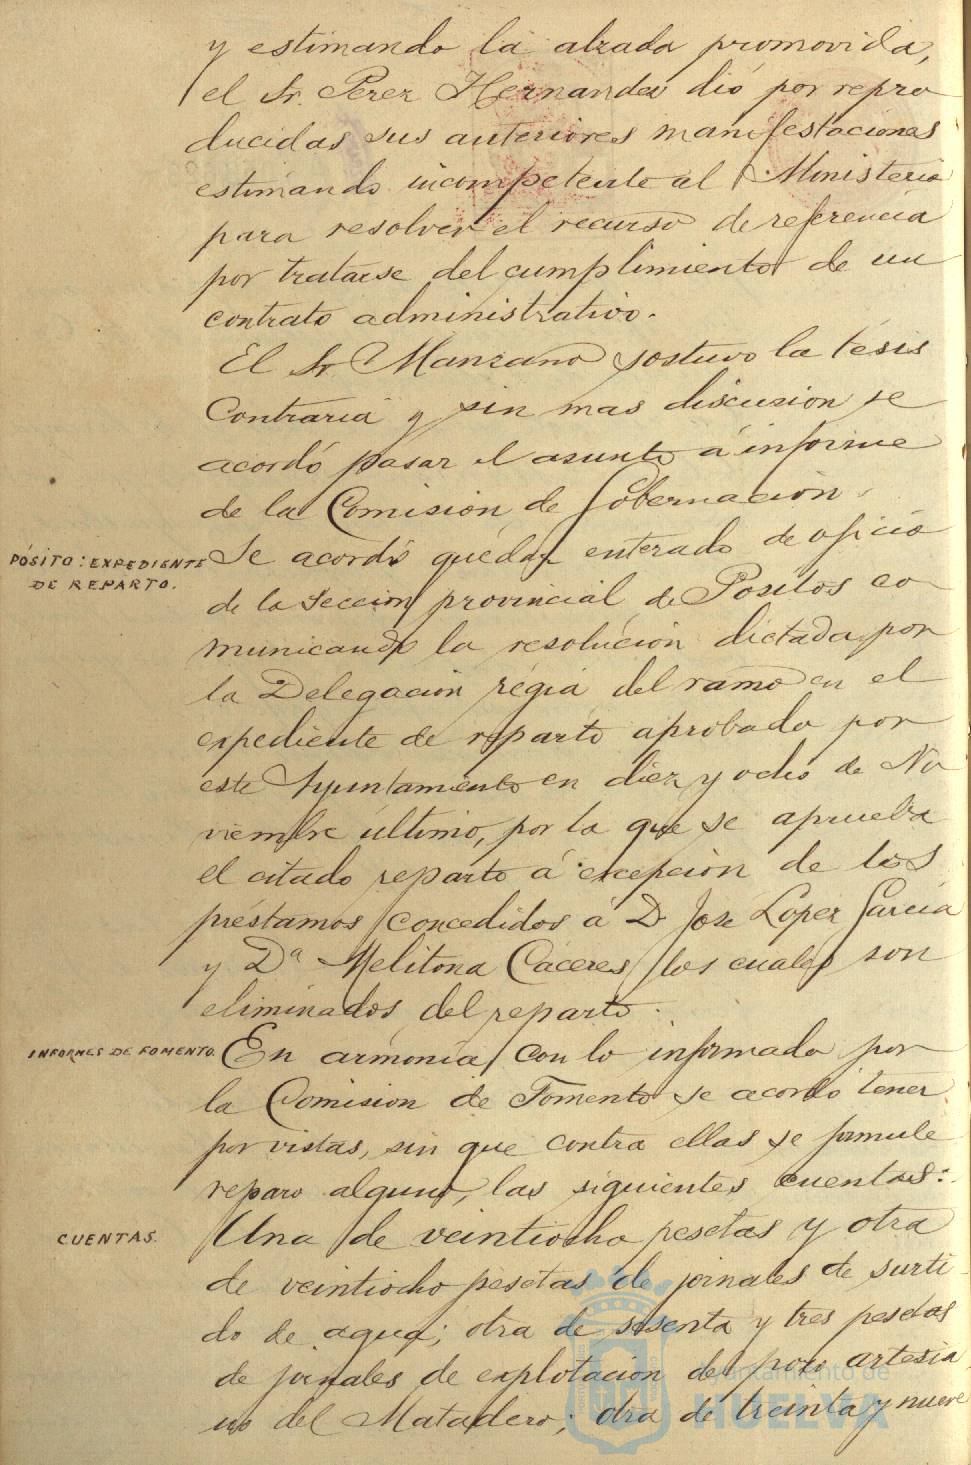 y estimando la alzada promovida,
el Sr. Perez Hernandez dió por repro
ducidas sus anteriores manifestaciones
estimando incompetente al Ministerio
para resolver el recurso de referencia
por tratarse del cumplimiento de un
contrato administrativo.
El Sr Manzano sostuvo la tésis
Contraria y sin mas discusion se
acordó pasar el asunto á informe
de la Comision de Gobernacion.
PÓSITO: EXPEDIENTE
DE REPARTO.
Se acordó quedar enterado de oficio
de la Seccion provincial de Pósitos co
municando la resolución dictada por
la Delegacion régia del ramo en el
expediente de reparto aprobado por
este Ayuntamiento en diez y ocho de No
viembre último, por la que se aprueba
el citado reparto á excepción de los
préstamos concedidos á D. José López García
y Dª Melitona Cáceres los cuales son
eliminados del reparto.
INFORMES DE FOMENTO.
En armonia con lo informado por
la Comision de Fomento se acordó tener
por vistas, sin que contra ellas se formule
reparo alguno, las siguientes cuentas:
CUENTAS.
Una de veintiocho pesetas y otra
de veintiocho pesetas de jornales de surti
do de agua; otra de sesenta y tres pesetas
de jornales de explotacion del pozo artesia
no del Matadero; otra de treinta y nueve
Ayuntamiento de
HUELVA